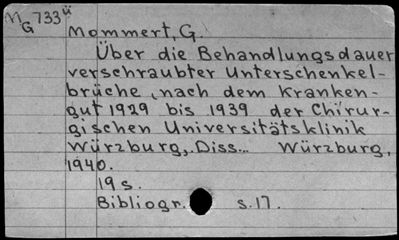 NG 733ü
Mommert, G.
Über die Behandlungsdauer
verschraubter Unterschenkel-
brüche, nach dem Kranken-
gut 1929 bis 1939 der Chirur-
gischen Universitätsklinik
Würzburg,. Diss... Würzburg,
1940.
19 s.
Bibliogr. s. 17.